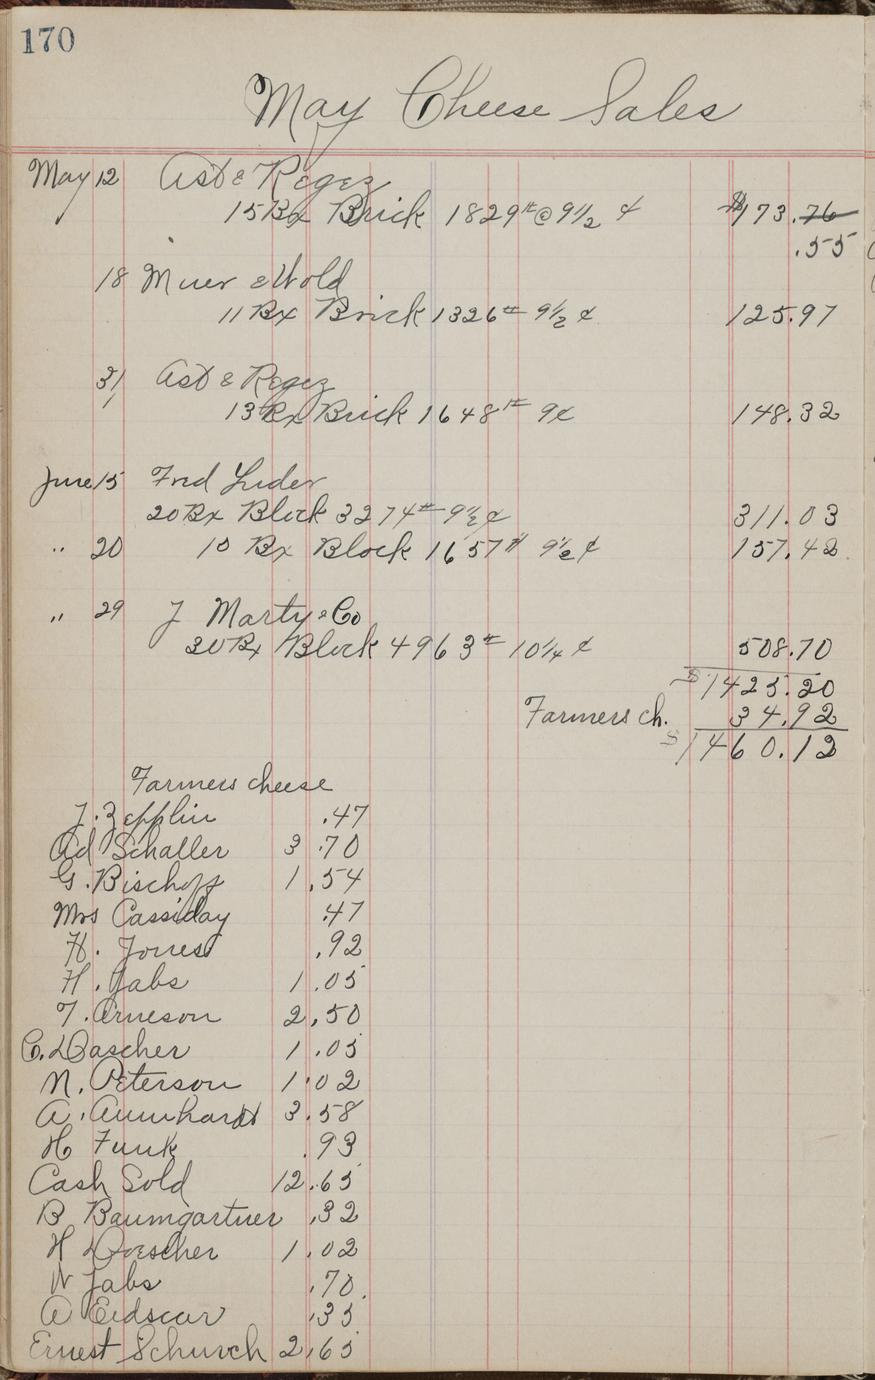 170
May Cheese Sales
May 12 Ast & Regez
15 Bx Brick 1829# @ 9 1/2 ¢ $173.76
.55
18 Meier & Wold
11 Bx Brick 1326# 9 1/2 ¢ 125.97
31 Ast & Regez
13 Bx Brick 1648# 9¢ 148.32
June 15 Fred Luder
20 Bx Block 3274# 9 1/2 ¢ 311.03
" 20 10 Bx Block 1657# 9 1/2 ¢ 157.42
" 29 J Marty & Co
30 Bx Block 4963# 10 1/4 ¢ 508.70
$1425.20
Farmers ch. 34.92
$1460.12
Farmers cheese
J. Zepplin .47
Ad Schaller 3.70
G. Bischoff 1.54
Mrs Cassiday .47
H. Jones .92
H. Jabs 1.05
T. Arneson 2.50
C. Dascher 1.05
N. Peterson 1.02
A. Aumhardt 3.58
H Funk .93
Cash Sold 12.65
B Baumgartner .32
H Doescher 1.02
W Jabs .70
A Eidscar .35
Ernest Schurch 2.65